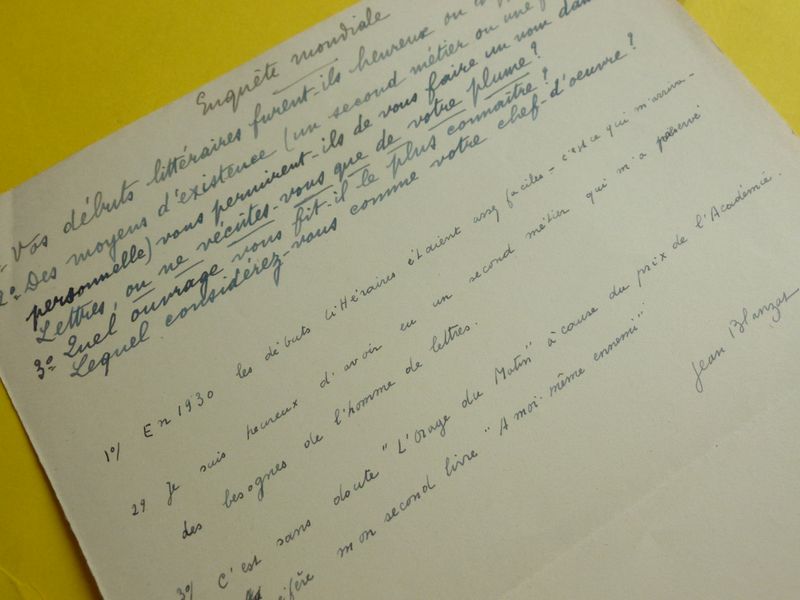 Enquête mondiale
Vos débuts littéraires furent-ils heureux ou
2° Des moyens d'existence (un second métier ou une
personnelle) vous permirent-ils de vous faire un nom dans
Lettres, ou ne vécûtes-vous que de votre plume?
3° Quel ouvrage vous fit-il le plus connaître?
Lequel considérez-vous comme votre chef-d'oeuvre?
1°/ En 1930 les débuts littéraires étaient assez faciles - c'est ce qui m'arriva -
2°/ Je suis heureux d'avoir eu un second métier qui m'a préservé
des besognes de l'homme de lettres.
3°/ C'est sans doute "L'Orage du Matin" à cause du prix de l'Académie.
mon second livre "A moi-même ennemi"
Jean Blanzat